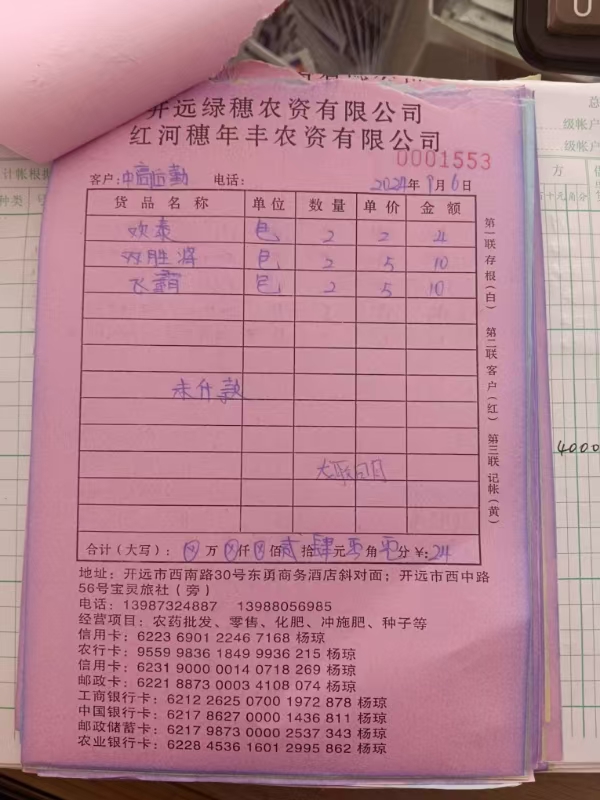 开远绿穗农资有限公司
红河穗年丰农资有限公司
0001553
客户: 中高后勤 电话: 2024年9月6日
货品名称 单位 数量 单价 金额
欢泰 包 2 2 4
双胜将 包 2 5 10
飞霸 包 2 5 10
未付款
合计(大写): 万 仟 佰 贰拾肆元零角零分 ¥: 24
第一联存根(白) 第二联客户(红) 第三联记帐(黄)
地址: 开远市西南路30号东勇商务酒店斜对面; 开远市西中路
56号宝灵旅社(旁)
电话: 13987324887 13988056985
经营项目: 农药批发、零售、化肥、冲施肥、种子等
信用卡: 6223 6901 2246 7168 杨琼
农行卡: 9559 9836 1849 9936 215 杨琼
信用卡: 6231 9000 0014 0718 269 杨琼
邮政卡: 6221 8873 0003 4108 074 杨琼
工商银行卡: 6212 2625 0700 1972 878 杨琼
中国银行卡: 6217 8627 0000 1436 811 杨琼
邮政储蓄卡: 6217 9873 0000 2537 343 杨琼
农业银行卡: 6228 4536 1601 2995 862 杨琼
级帐户
级帐户
计帐根据
种类 号
4000